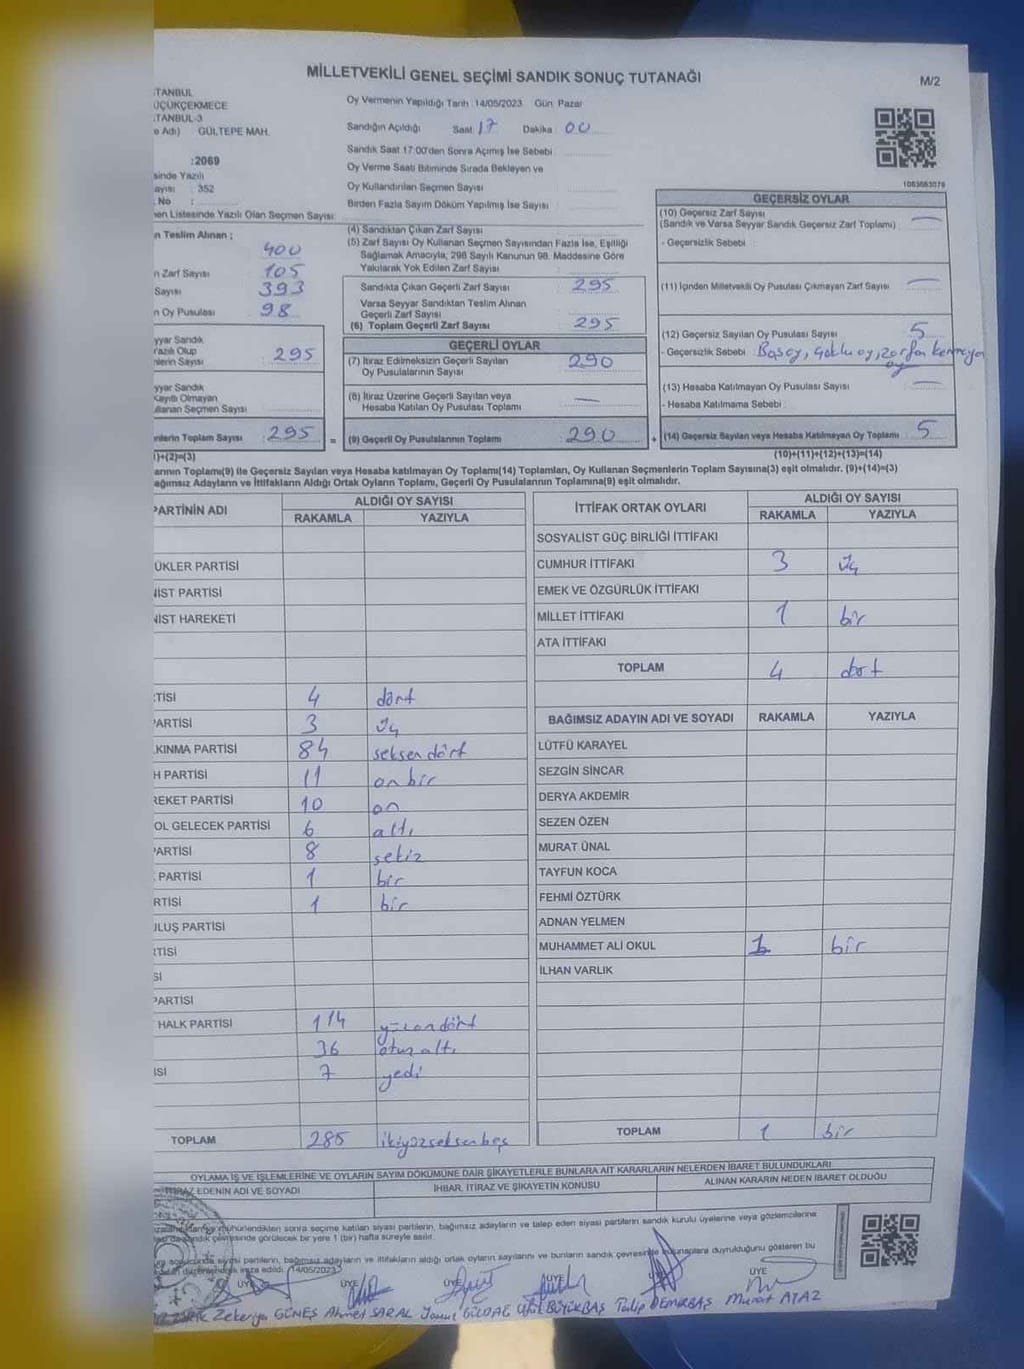 MİLLETVEKİLİ GENEL SEÇİMİ SANDIK SONUÇ TUTANAĞI
M/2
TANBUL
ÜÇÜKÇEKMECE
TANBUL-3
Adı) GÜLTEPE MAH.
:2069
sinde Yazılı
ayısı : 352
No :
Listesinde Yazılı Olan Seçmen Sayısı
Oy Vermenin Yapıldığı Tarih :14/05/2023 Gün: Pazar
Sandığın Açıldığı Saat 17 Dakika : 00
Sandık Saat 17:00'den Sonra Açımış İse Sebebi
Oy Verme Saati Bitiminde Sırada Bekleyen ve
Oy Kullandırılan Seçmen Sayısı
Birden Fazla Sayım Döküm Yapılmış İse Sayısı
1083683079
n Teslim Alınan ;
400
n Zarf Sayısı 105
Sayısı 393
n Oy Pusulası 98
yyar Sandık
Yazılı Olup
nlerin Sayısı 295
yyar Sandık
Kayıtlı Olmayan
ullanan Seçmen Sayısı
nlerin Toplam Sayısı 295 =
)+(2)=(3)
(4) Sandıktan Çıkan Zarf Sayısı
(5) Zarf Sayısı Oy Kullanan Seçmen Sayısından Fazla İse, Eşitliği
Sağlamak Amacıyla, 298 Sayılı Kanunun 98. Maddesine Göre
Yakılarak Yok Edilen Zarf Sayısı
Sandıkta Çıkan Geçerli Zarf Sayısı 295
Varsa Seyyar Sandıktan Teslim Alınan
Geçerli Zarf Sayısı
(6) Toplam Geçerli Zarf Sayısı 295
GEÇERLİ OYLAR
(7) İtiraz Edilmeksizin Geçerli Sayılan
Oy Pusulalarının Sayısı 290
(8) İtiraz Üzerine Geçerli Sayılan veya
Hesaba Katılan Oy Pusulası Toplamı —
(9) Geçerli Oy Pusulalarının Toplamı 290 +
GEÇERSİZ OYLAR
(10) Geçersiz Zarf Sayısı
(Sandık ve Varsa Seyyar Sandık Geçersiz Zarf Toplamı) : —
- Geçersizlik Sebebi :
(11) İçinden Milletvekili Oy Pusulası Çıkmayan Zarf Sayısı —
(12) Geçersiz Sayılan Oy Pusulası Sayısı 5
- Geçersizlik Sebebi
(13) Hesaba Katılmayan Oy Pusulası Sayısı —
- Hesaba Katılmama Sebebi
(14) Geçersiz Sayılan veya Hesaba Katılmayan Oy Toplamı 5
(10)+(11)+(12)+(13)=(14)
arının Toplamı(9) ile Geçersiz Sayılan veya Hesaba katılmayan Oy Toplamı(14) Toplamları, Oy Kullanan Seçmenlerin Toplam Sayısına(3) eşit olmalıdır. (9)+(14)=(3)
ağımsız Adayların ve İttifakların Aldığı Ortak Oyların Toplamı, Geçerli Oy Pusulalarının Toplamına(9) eşit olmalıdır.
PARTİNİN ADI ALDIĞI OY SAYISI
RAKAMLA YAZIYLA
ÜKLER PARTİSİ
NİST PARTİSİ
NİST HAREKETİ
TİSİ 4 dört
ARTİSİ 3 üç
KINMA PARTİSİ 84 seksen dört
H PARTİSİ 11 on bir
REKET PARTİSİ 10 on
OL GELECEK PARTİSİ 6 altı
ARTİSİ 8 sekiz
PARTİSİ 1 bir
RTİSİ 1 bir
ULUŞ PARTİSİ
RTİSİ
Sİ
PARTİSİ
HALK PARTİSİ 114 yüzondört
36 otuz altı
İSİ 7 yedi
TOPLAM 285 ikiyüzseksenbeş
İTTİFAK ORTAK OYLARI ALDIĞI OY SAYISI
RAKAMLA YAZIYLA
SOSYALİST GÜÇ BİRLİĞİ İTTİFAKI
CUMHUR İTTİFAKI 3 üç
EMEK VE ÖZGÜRLÜK İTTİFAKI
MİLLET İTTİFAKI 1 bir
ATA İTTİFAKI
TOPLAM 4 dört
BAĞIMSIZ ADAYIN ADI VE SOYADI RAKAMLA YAZIYLA
LÜTFÜ KARAYEL
SEZGİN SİNCAR
DERYA AKDEMİR
SEZEN ÖZEN
MURAT ÜNAL
TAYFUN KOCA
FEHMİ ÖZTÜRK
ADNAN YELMEN
MUHAMMET ALİ OKUL 1 bir
İLHAN VARLIK
TOPLAM 1 bir
OYLAMA İŞ VE İŞLEMLERİNE VE OYLARIN SAYIM DÖKÜMÜNE DAİR ŞİKAYETLERLE BUNLARA AİT KARARLARIN NELERDEN İBARET BULUNDUKLARI
İTİRAZ EDENİN ADI VE SOYADI İHBAR, İTİRAZ VE ŞİKAYETİN KONUSU ALINAN KARARIN NEDEN İBARET OLDUĞU
mühürlendikten sonra seçime katılan siyasi partilerin, bağımsız adayların ve talep eden siyasi partilerin sandık kurulu üyelerine veya gözlemcilerine
sandık çevresinde görülecek bir yere 1 (bir) hafta süreyle asılır.
siyasi partilerin, bağımsız adayların ve ittifakların aldığı ortak oyların sayılarını ve bunların sandık çevresinde duyrulduğunu gösteren bu
imza edildi. (14/05/2023)
ÜYE ÜYE ÜYE ÜYE ÜYE
Zekeriya GÜNEŞ Ahmet SARAL GÜLDAĞ BÜYÜKBAŞ Talip DEMİRBAŞ Murat AYAZ